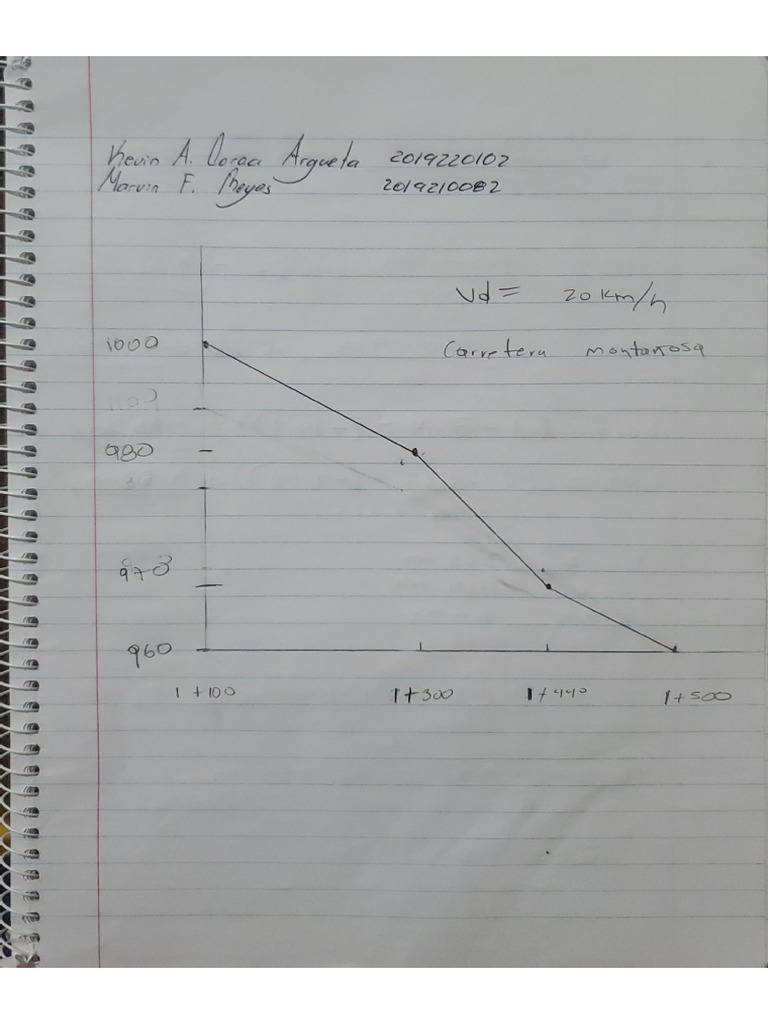 Kevin A. Argueta 2019220102
Marvin F. Reyes 2019210082
Vd = 20 Km/h
1000
Carretera montañosa
980
960
1+100 1+300 1+440 1+500